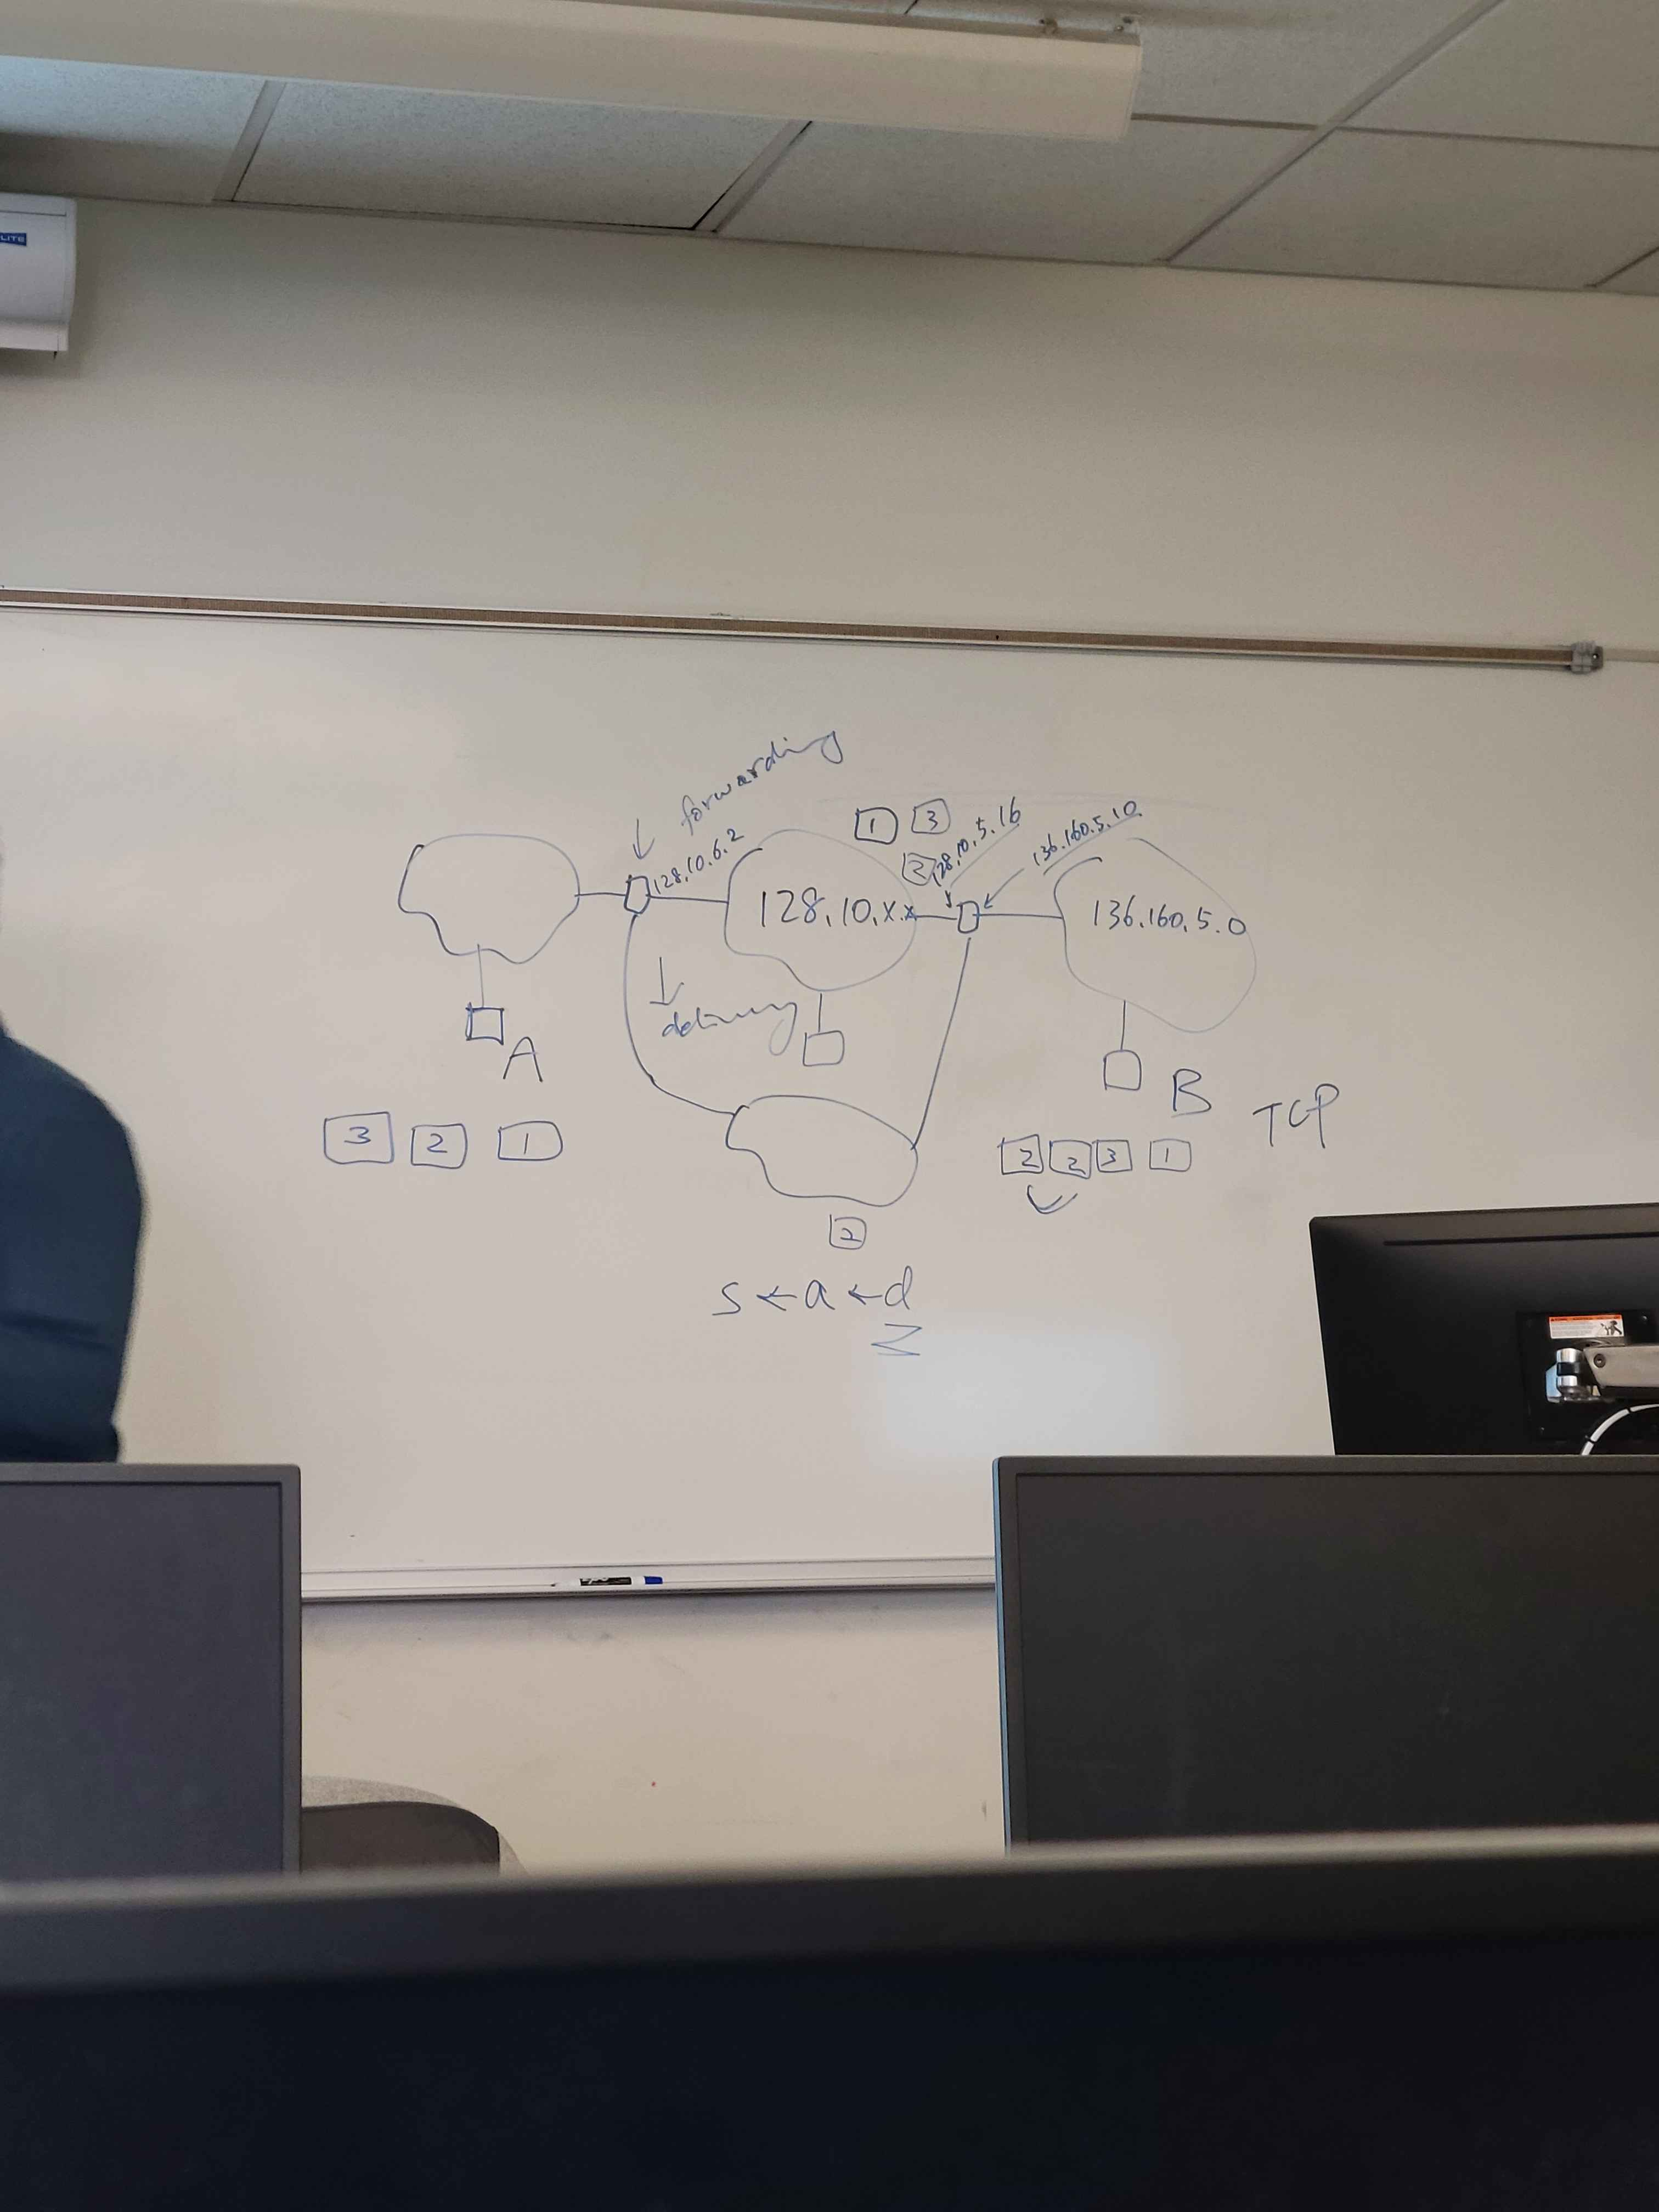 LITE
forwarding
128.10.6.2
1 3
2
128.10.5.16
136.160.5.10
128.10.x.x
136.160.5.0
delivery
A
B
TCP
3 2 1
2 2 3 1
2
s ← a ← d